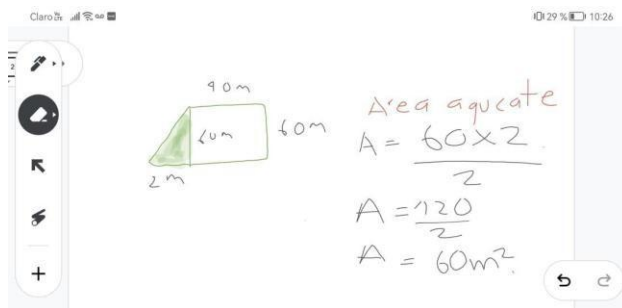 Claro 29 % 10:26
90m
60m
60m
2m
Area agucate
A = 60x2
2
A = 120
2
A = 60m².